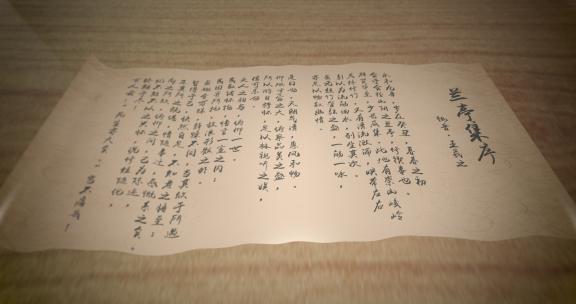 兰亭集序
魏晋:王羲之
永和九年,岁在癸丑,暮春之初,
会于会稽山阴之兰亭,修禊事也。
群贤毕至,少长咸集。此地有崇山峻岭,
茂林修竹,又有清流激湍,映带左右,
引以为流觞曲水,列坐其次。
虽无丝竹管弦之盛,一觞一咏,
亦足以畅叙幽情。
是日也,天朗气清,惠风和畅。
仰观宇宙之大,俯察品类之盛,
所以游目骋怀,足以极视听之娱,
信可乐也。
夫人之相与,俯仰一世。
或取诸怀抱,悟言一室之内;
或因寄所托,放浪形骸之外。
虽趣舍万殊,静躁不同,当其欣于所遇,
暂得于己,快然自足,不知老之将至;
及其所之既倦,情随事迁,感慨系之矣。
向之所欣,俯仰之间,已为陈迹,
犹不能不以之兴怀,况修短随化,
终期于尽!
古人云:“死生亦大矣。”岂不痛哉!